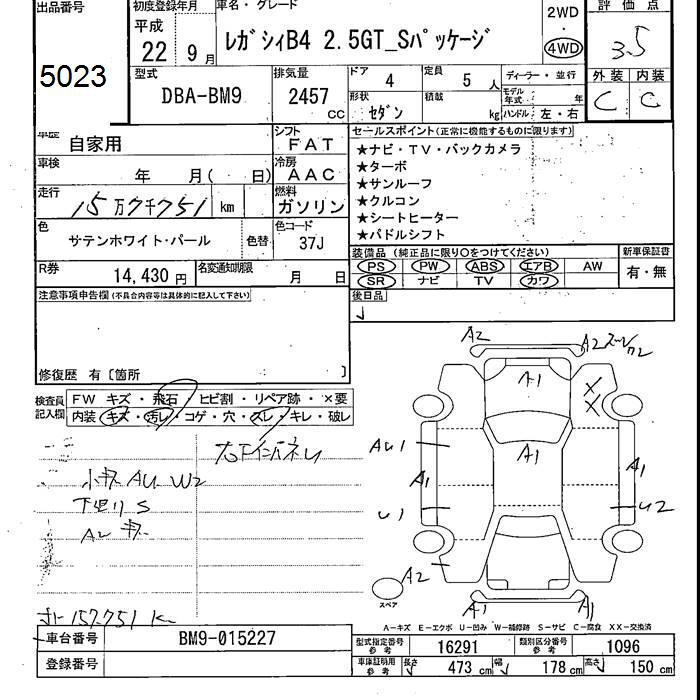 出品番号
5023
初度登録年月
平成
22 9月
車名・グレード
レガシィB4 2.5GT_Sパッケージ
2WD
・
4WD
評価点
3.5
外装 内装
C C
型式
DBA-BM9
排気量
2457
CC
ドア
4
定員
5 人
形状
セダン
積載
kg
ディーラー・並行
モデル年式 年
ハンドル 左・右
車歴
自家用
シフト
FAT
車検
年 月( 日)
冷房
AAC
走行
15万7千751 km
燃料
ガソリン
色
サテンホワイト・パール
色替
色コード
37J
R券
14,430 円
名変通知期限
月 日
セールスポイント(正常に機能するものに限ります)
★ナビ・TV・バックカメラ
★ターボ
★サンルーフ
★クルコン
★シートヒーター
★パドルシフト
装備品 (純正品に限り○をつけてください)
PS PW ABS エアB AW
SR ナビ TV カワ
新車保証書
有・無
後日品
注意事項申告欄(不具合内容等は具体的に記入して下さい)
修復歴 有〔箇所 〕
検査員記入欄
FW キズ・飛石・ヒビ割・リペア跡・×要
内装 キズ・汚レ・コゲ・穴・スレ・キレ・破レ
小キズ AU W2
下廻り S
AL キズ
157,751 K
A2
A1
A1
AU1
A1
U1
A2
A1
A1
U2
A1
A1
スペア
A-キズ E-エクボ U-凹み W-補修跡 S-サビ C-腐食 XX-交換済
車台番号
BM9-015227
登録番号
型式指定番号 参考
16291
類別区分番号 参考
1096
車庫証明用 参考
長さ 473 cm
幅 178 cm
高さ 150 cm